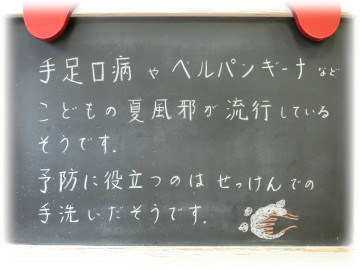 手足口病やヘルパンギーナなど
こどもの夏風邪が流行している
そうです.
予防に役立つのはせっけんでの
手洗いだそうです.